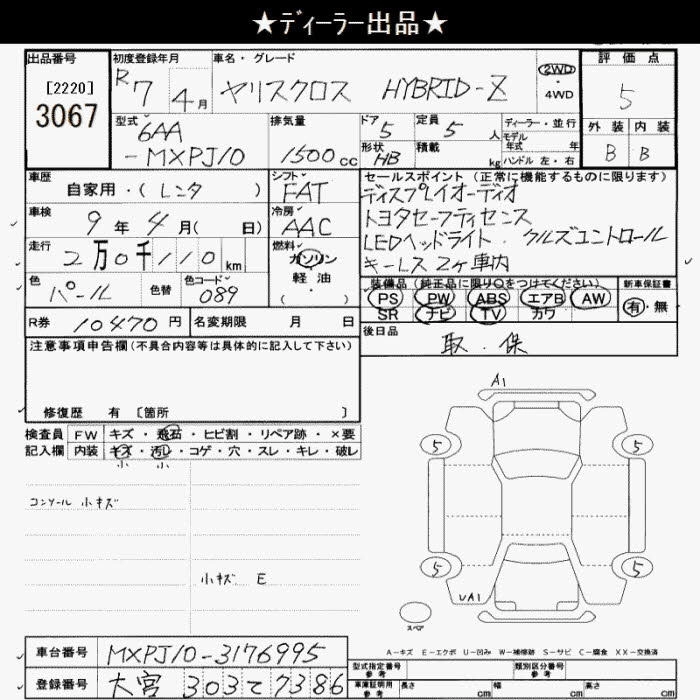 ★ディーラー出品★
出品番号
[2220]
3067
初度登録年月
R7 4月
車名・グレード
ヤリスクロス HYBRID-Z
2WD
・
4WD
評価点
5
外装 内装
B B
型式
6AA
-MXPJ10
排気量
1500cc
ドア
5
定員
5人
形状
HB
積載
kg
ディーラー・並行
モデル
年式 年
ハンドル 左・右
車歴
自家用・(レンタ )
シフト
FAT
車検
9年4月( 日)
冷房
AAC
走行
2万0千110km
燃料
ガソリン
・
軽油
( )
色
パール
色替
色コード
089
R券
10470円
名変期限 月 日
セールスポイント(正常に機能するものに限ります)
ディスプレイオーディオ
トヨタセーフティセンス
LEDヘッドライト・クルズコントロール
キーレス2ヶ車内
装備品(純正品に限り○をつけてください)
新車保証書
PS PW ABS エアB AW
SR ナビ TV カワ
有・無
後日品
取・保
注意事項申告欄(不具合内容等は具体的に記入して下さい)
修復歴 有 〔箇所 〕
検査員
記入欄
FW キズ・飛石・ヒビ割・リペア跡・×要
内装 キズ・汚レ・コゲ・穴・スレ・キレ・破レ
小 小
コンソール小キズ
小キズ E
A1
5
5
5
5
UA1
スペア
A-キズ E-エクボ U-凹み W-補修跡 S-サビ C-腐食 XX-交換済
車台番号
MXPJ10-3176995
登録番号
大宮 303て7386
型式指定番号
参考
類別区分番号
参考
車庫証明用
参考
長さ cm 幅 cm 高さ cm